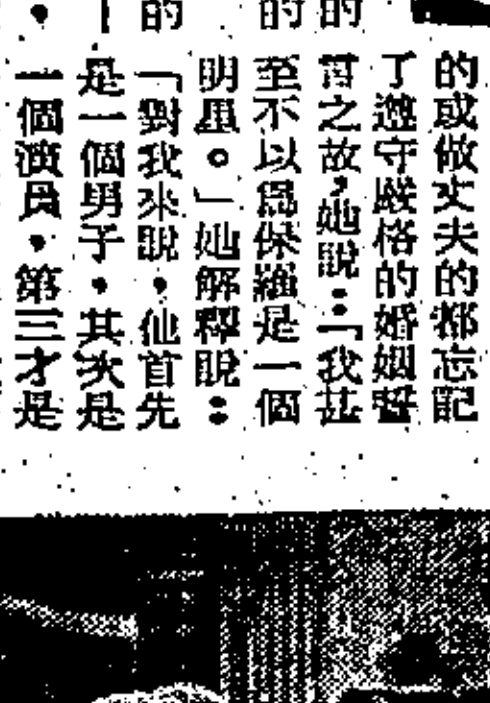 的或做丈夫的都忘記
了遵守嚴格的婚姻誓
之故，她說：「我甚
至不以爲保羅是一個
明星。」她解釋說：
「對我來說，他首先
是一個男子，其次是
一個演員，第三才是